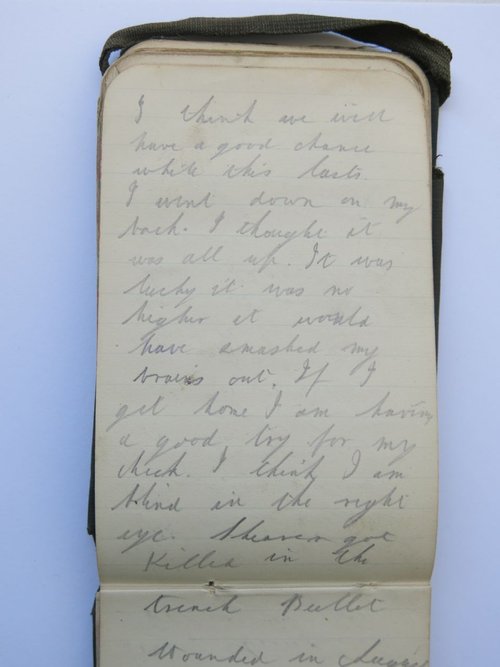 I think we will
have a good chance
while this lasts.
I went down on my
back. I thought it
was all up. It was
lucky it was no
higher it would
have smashed my
brains out. If I
get home I am having
a good try for my
I think I am
blind in the right
eye. got
Killed in the
trench Bullet
Wounded in